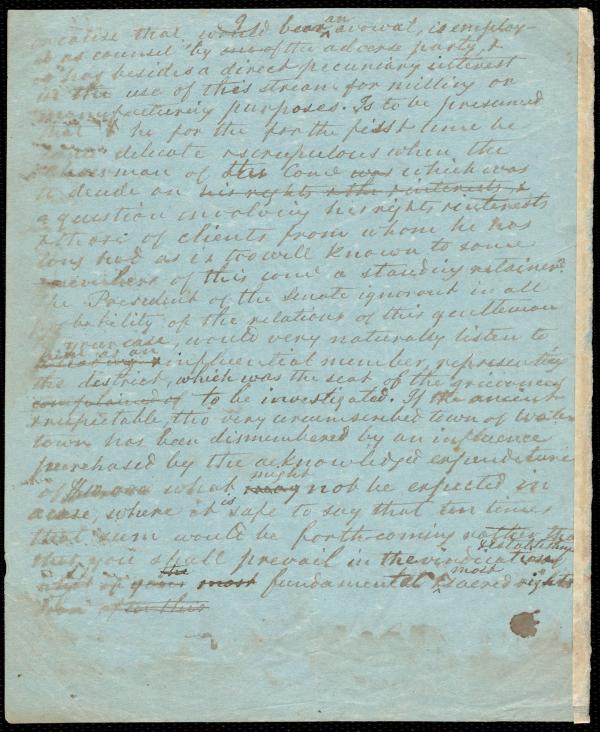 that would bear an avowal, is employ-
as counsel by one of the adverse party, &
has besides a direct pecuniary interest
in the use of this stream for milling or
manufacturing purposes. Is to be presumed
that he for the for the first time be
delicate & scrupulous when the
chairman of this Come was which was
to decide on his rights & the interests &
a question involving his rights & interests
& those of clients from whom he has
long had as is too well known to some
members of this come a standing retainer?
The President of the Senate ignorant in all
probability of the relations of this gentleman
your case, would very naturally listen to
as an influential member, representing
the district, which was the seat of the grievances
complained of to be investigated. If the ancient
respectable, tho very circumscribed town of Water
town has been dismembered by an influence
purchased by the acknowledged expenditure
of what may might not be expected in
a case, where it is safe to say that ten times
that sum would be forthcoming rather than
that you shall prevail in the vindication & establishing
of your the most fundamental & most sacred rights
after this